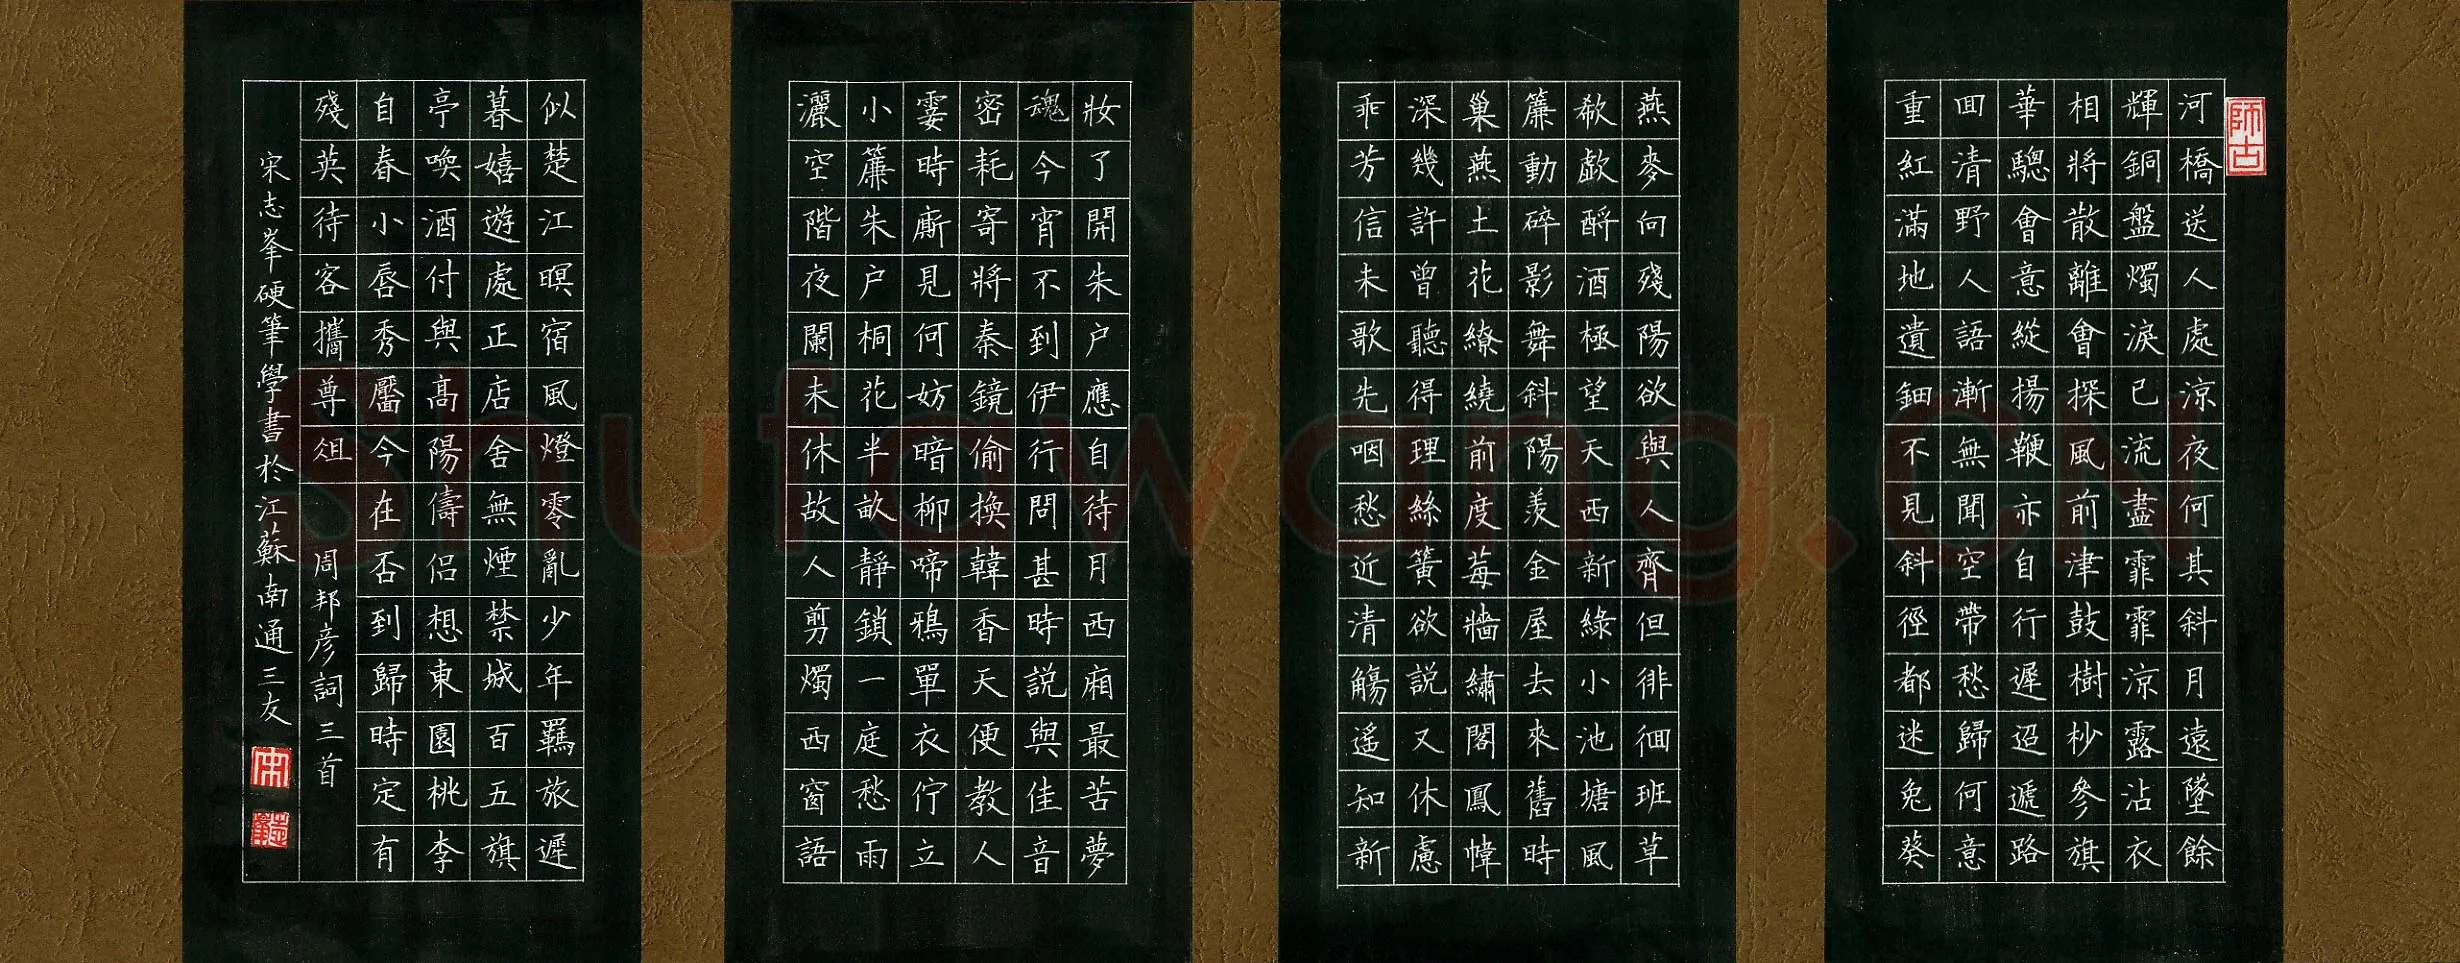 師古
河橋送人處涼夜何其斜月遠墜餘
輝銅盤燭淚已流盡霏霏涼露沾衣
相將散離會探風前津鼓樹杪參旗
華驄會意縱揚鞭亦自行遲迢遞路
回清野人語漸無聞空帶愁歸何意
重紅滿地遺鈿不見斜徑都迷兔葵
燕麥向殘陽欲與人齊但徘徊班草
欷歔酹酒極望天西新綠小池塘風
簾動碎影舞斜陽羨金屋去來舊時
巢燕土花繚繞前度莓牆繡閣鳳幃
深幾許曾聽得理絲簧欲說又休慮
乖芳信未歌先咽愁近清觴遙知新
妝了開朱户應自待月西廂最苦夢
魂今宵不到伊行問甚時說與佳音
密耗寄將秦鏡偷換韓香天便教人
霎時廝見何妨暗柳啼鴉單衣佇立
小簾朱户桐花半畝靜鎖一庭愁雨
灑空階夜闌未休故人剪燭西窗語
似楚江暝宿風燈零亂少年羈旅遲
暮嬉遊處正店舍無煙禁城百五旗
亭喚酒付與高陽儔侶想東園桃李
自春小唇秀靨今在否到歸時定有
殘英待客攜尊俎 周邦彥詞三首
宋志峯硬筆學書於江蘇南通三友
宋
志峯
shufawang.CN